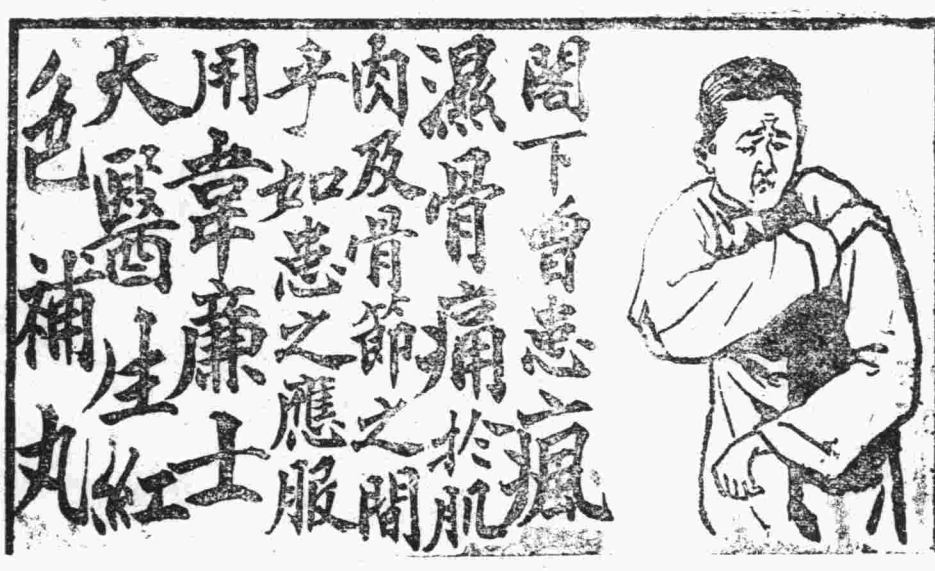 閣下曾患瘋
濕骨痛於肌
肉及骨節之間
乎如患之應服
用韋廉士
大醫生紅
色補丸